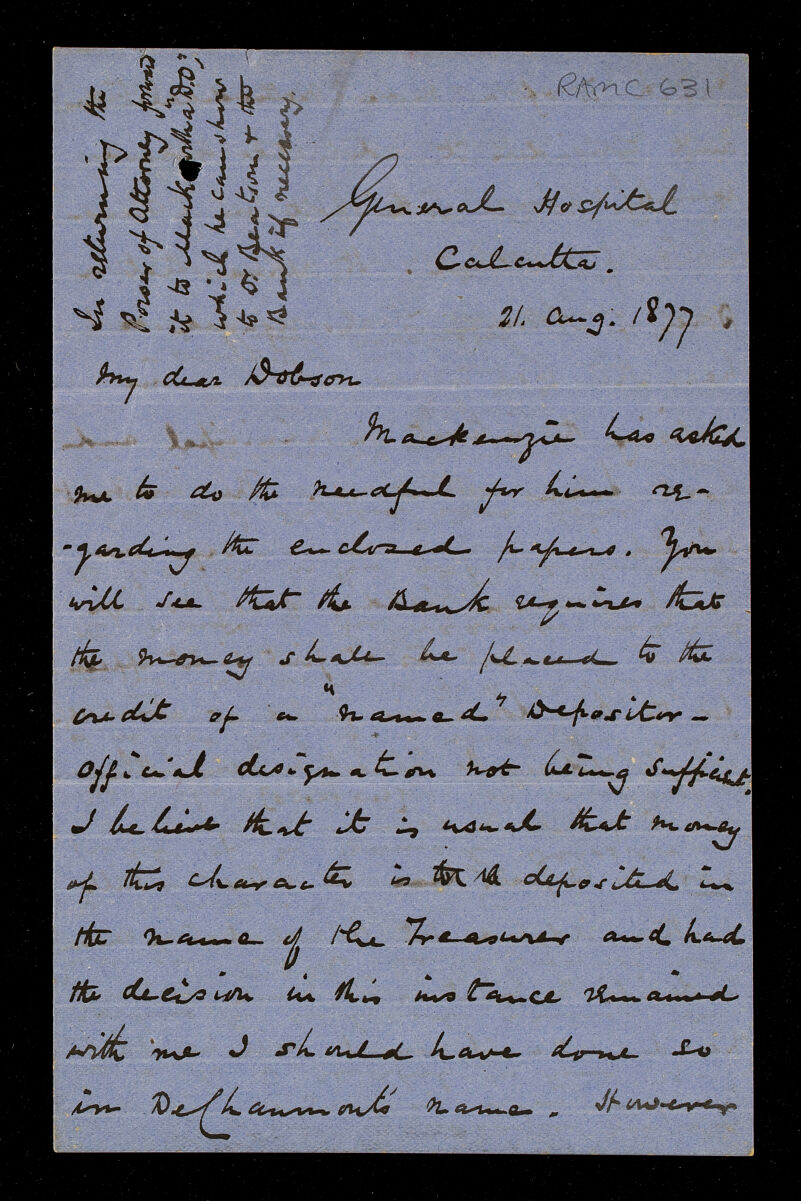 RAMC 631
In returning the
Power of Attorney forward
it to Mack with a "D.O",
which he can show
to Dr Beatson & the
Bank if necessary.
General Hospital
Calcutta.
21. Aug. 1877
My dear Dobson
Mackenzie has asked
me to do the needful for him re-
-garding the enclosed papers. You
will see that the Bank requires that
the money shall be placed to the
credit of a "named" Depositor -
official designation not being sufficient.
I believe that it is usual that money
of this character is deposited in
the name of the Treasurer and had
the decision in this instance remained
with me I should have done so
in DeChaumont's name. However